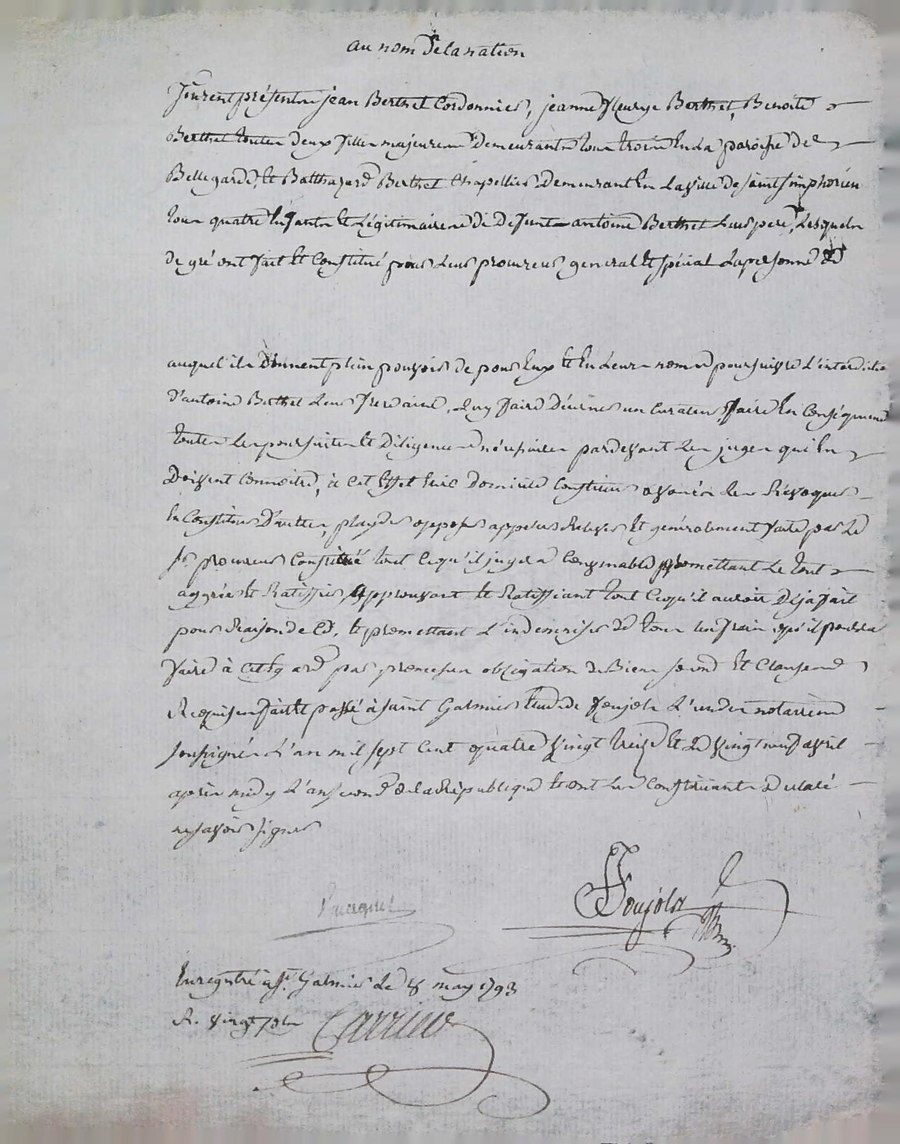 au nom de la nation
furent présentre jean Berthet Cordonnier, jeanne fleurye Berthet, Benoite
Berthet toutes deux filles majeures Demeurants tous trois en la paroisse de
Bellegarde, et Balthazard Berthet Chapellier Demeurant en la ville de saint simphorien
tous quatre enfants et Légitimaires de Defunt antoine Berthet Leur pere, Lesquels
de gré ont fait et Constitué pour Leur procureur general et spécial La personne de
auquel ils Donnent plein pouvoir de pour Eux et en Leurs noms poursuivre L'interdiction
d'antoine Berthet Leur frere ainé, Luy faire Décerner un Curateur, faire En Conséquence
toutes les poursuites et Diligences nécessaires pardevant Les juges qui En
Doivent Connoitre, à Cet Effet Elire Domicile Constituer avoués les Révoquer
En Constituer D'autres, plaider opposer appeller et generalement faire par Le
sr. procureur Constitué tout Cequ'il jugera Convenable promettant Le tout
aggréer et Ratiffier, Approuvant et Ratiffiant tout Cequ'il auroit Déja fait
pour Raison de Ce, et promettant L'indemniser de tous les frais qu'il pourra
faire à Cet Egard par promesses obligation de Biens serment et Clauses
Requises fait et passé à saint Galmier Etude de foujols L'un des notaires
soussignés L'an mil sept Cent quatre vingt treize et Le vingt neuf avril
après midy L'an second de la République et ont Les Constituants Déclaré
ne savoir signer
Foujols
Enregistré à St. Galmier Le 8 may 1793
R. vingt sols Carrier